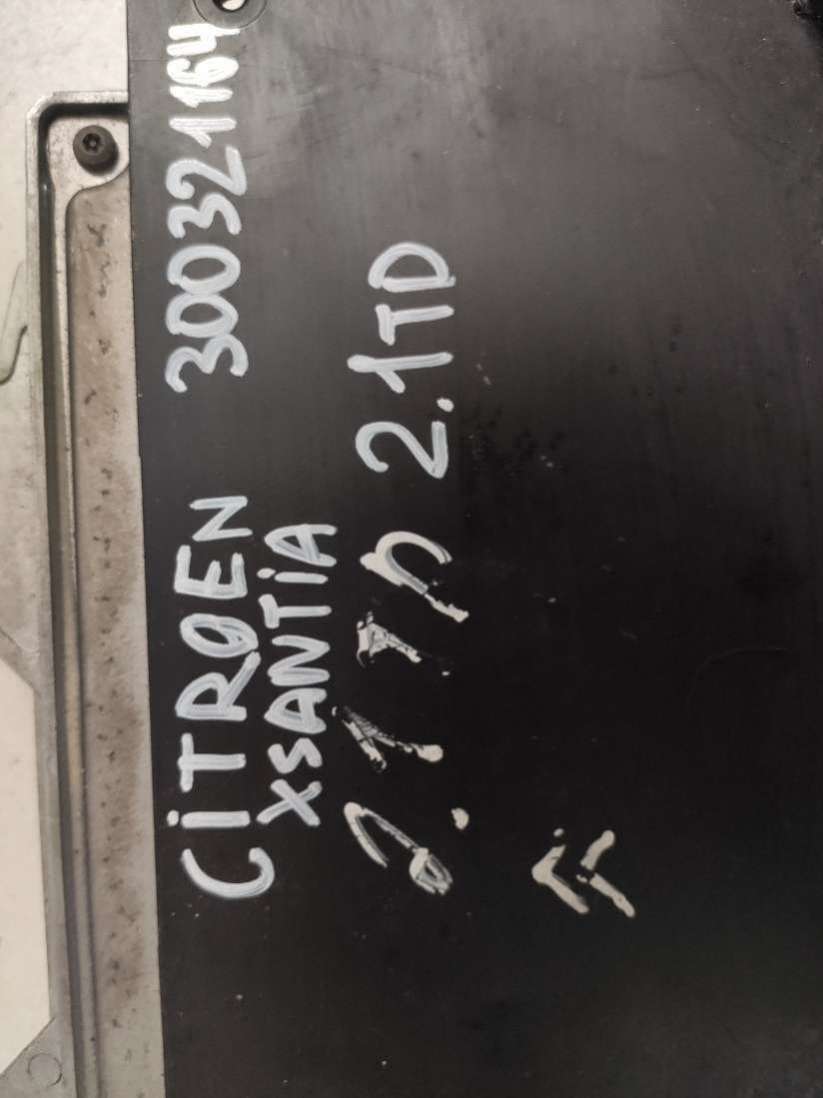 CiTROEN 300321164
XSANTiA
2.1TD 2.1TD